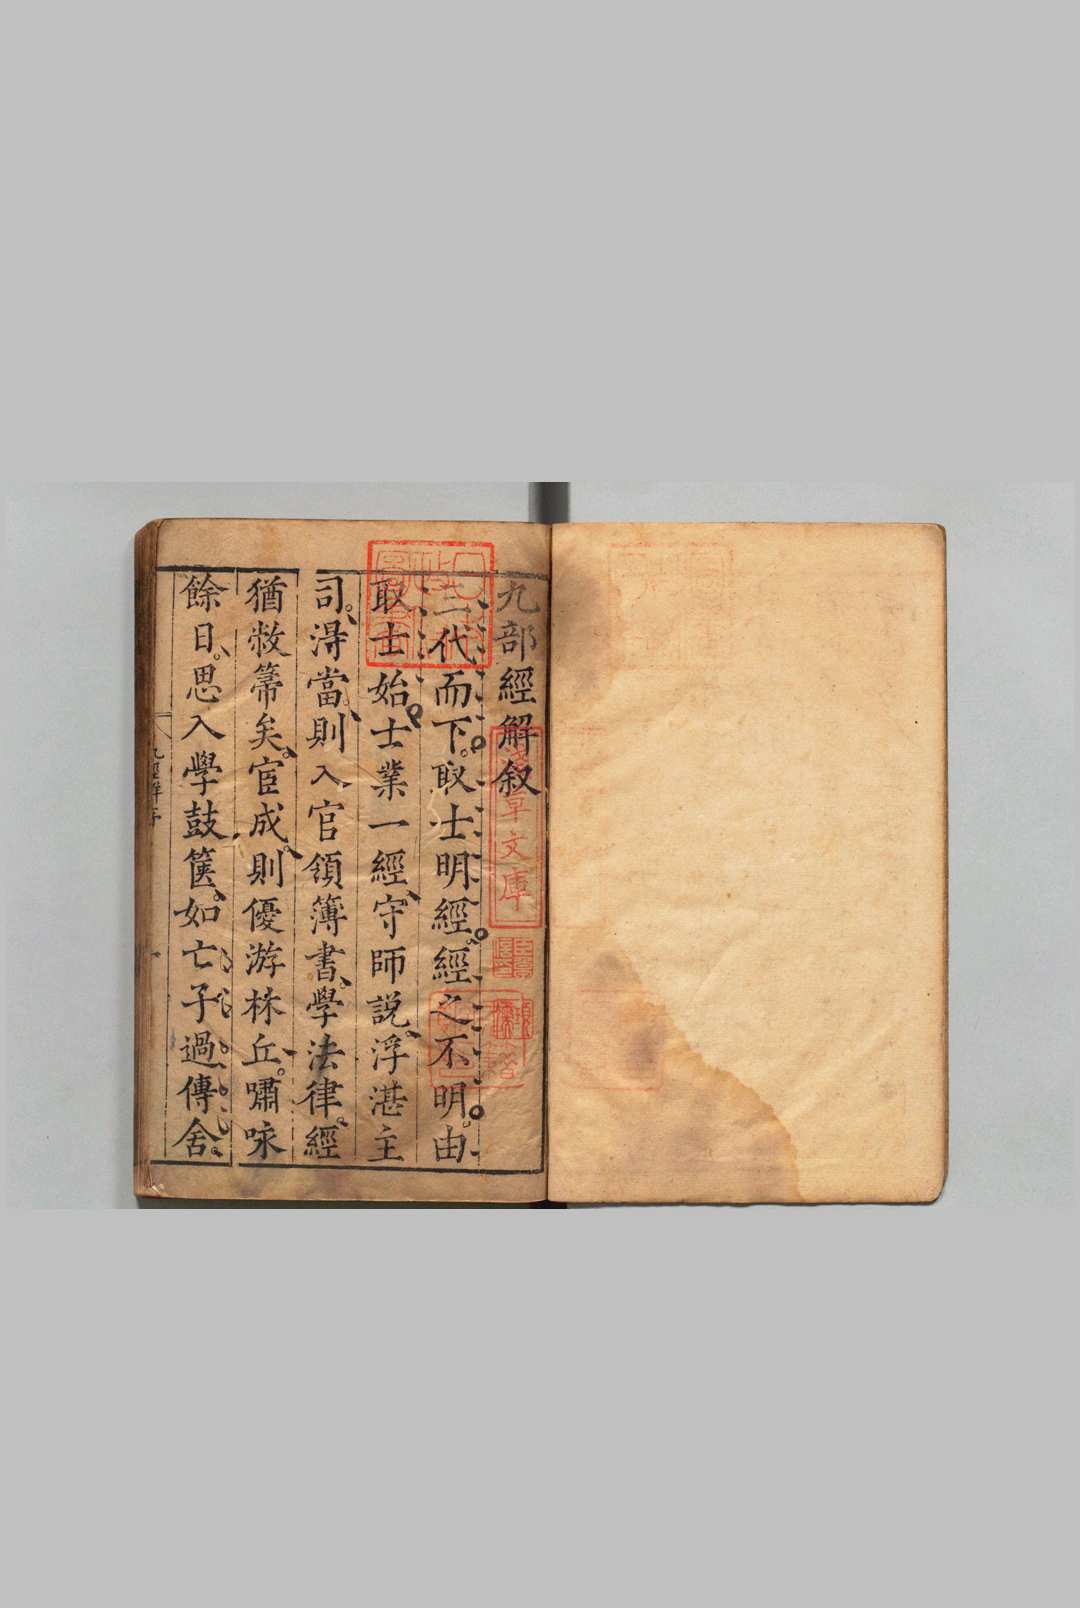 九部經解叙
三代而下。取士明經。經之不明。由
取士始。士業一經。守師説。浮湛主
司。淂當。則入官領簿書。學法律。經
猶敝箒矣。宦成。則優游林丘。嘯咏
餘日。思入學鼓篋。如亡子過傳舍。
淺草文庫